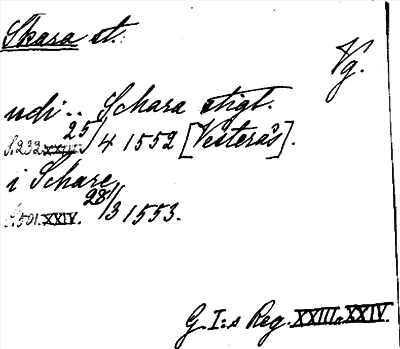 Skara st.
Vg.
udi .. Schara stigt.
S. 232. XXIII: 25/4 1552 [Vesterås].
i Schare
S. 501. XXIV. 28/3 1553.
G. I:s Reg. XXIII. XXIV.